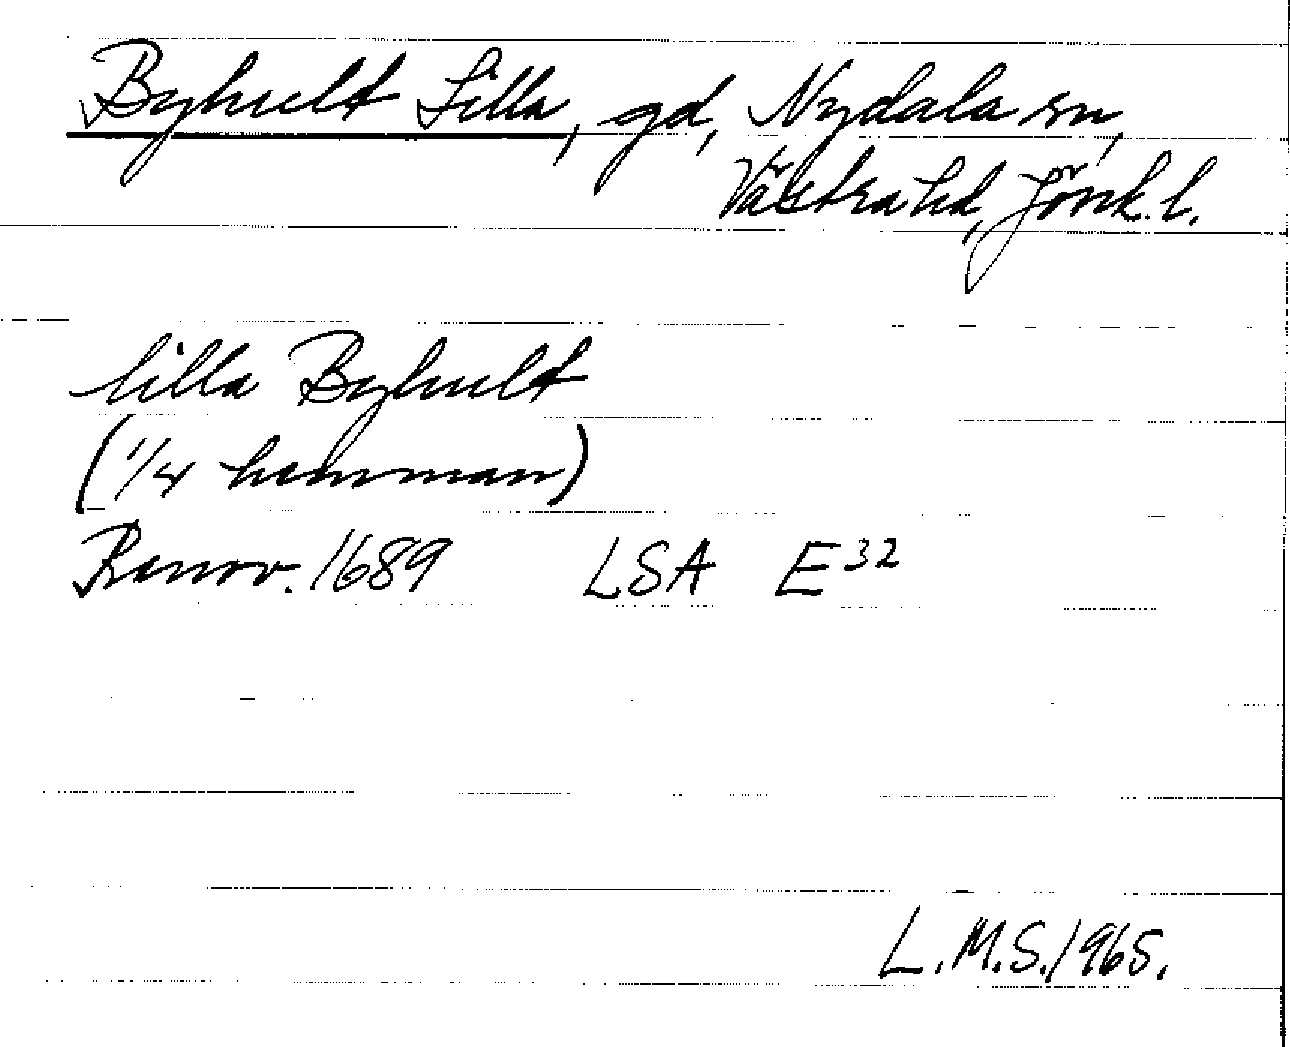 Byhult Lilla, gd, Nydala sn,
Västra hd, Jönk. l.
lilla Byhult
(1/4 hemman)
Renov. 1689 LSA E32
L.M.S. 1965.